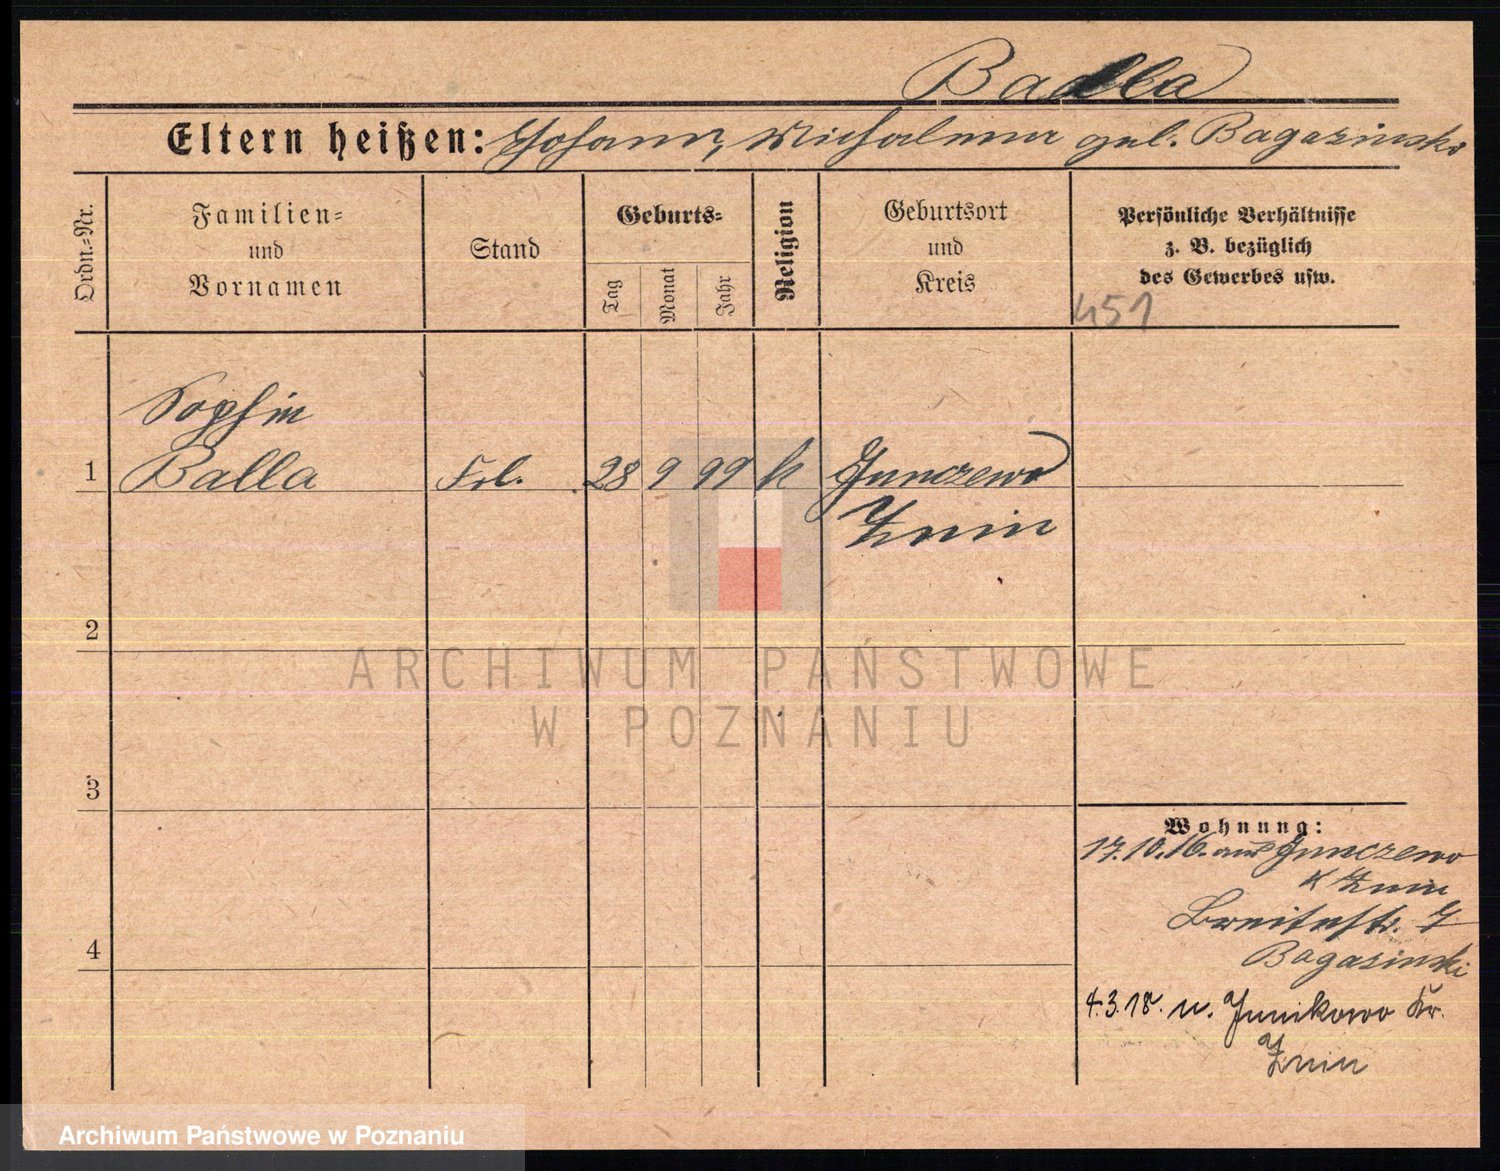 Balla
Eltern heißen: Johann, Michalina geb. Bagasinska
Ordn.=Nr.
Familien=
und
Vornamen
Stand
Geburts=
Tag
Monat
Jahr
Religion
Geburtsort
und
Kreis
Persönliche Verhältnisse
z. B. bezüglich
des Gewerbes usw.
451
Sophie
1 Balla Frl. 28 9 99 k Junczewo
Znin
2
3
4
Wohnung:
17.10.16. aus Junczewo
K Znin
Breitestr. 7
Bagasinski
4.3.18. n. Junikowo Kr.
Znin
ARCHIWUM PAŃSTWOWE
W POZNANIU
Archiwum Państwowe w Poznaniu